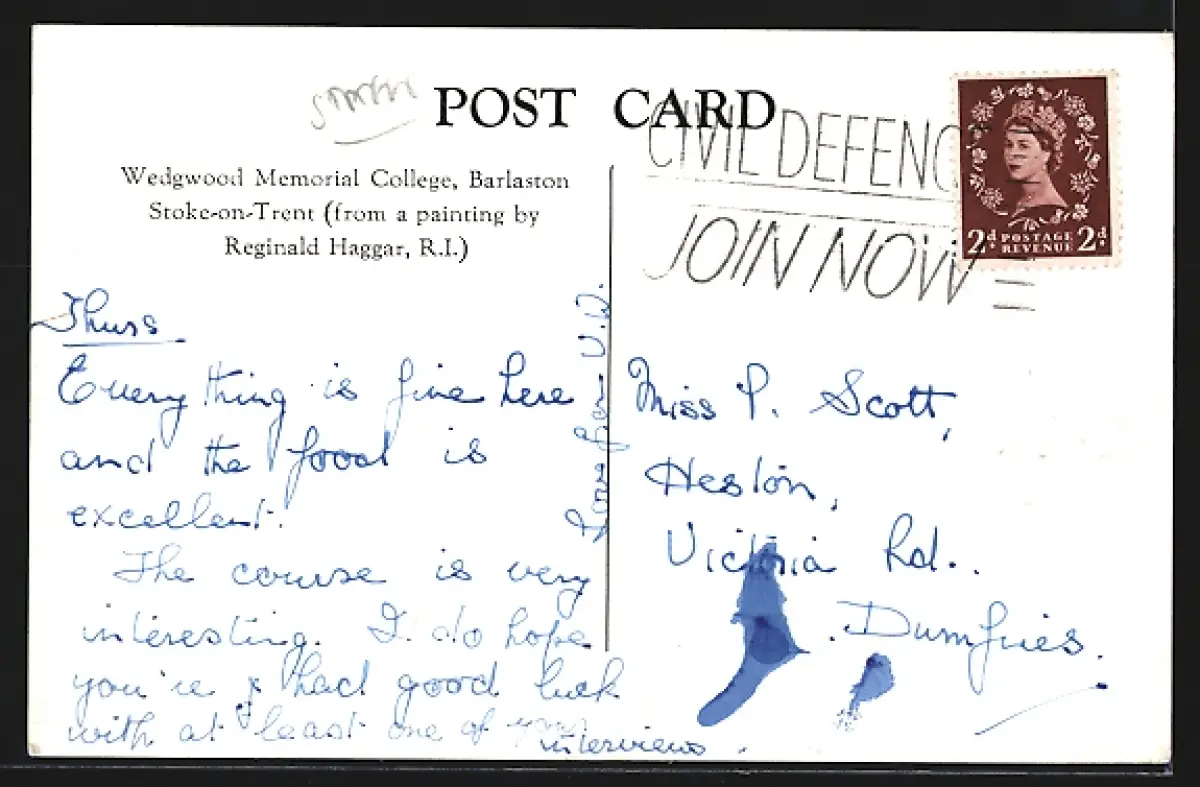 POST CARD
Wedgwood Memorial College, Barlaston
Stoke-on-Trent (from a painting by
Reginald Haggar, R.I.)
CIVIL DEFENC
JOIN NOW
2d POSTAGE REVENUE 2d
Thurs
Everything is fine here
and the food is
excellent.
The course is very
interesting. I do hope
you've had good luck
with at least one of your
interviews.
Love from V.W.
Miss P. Scott,
Heston,
Victoria Rd..
Dumfries.